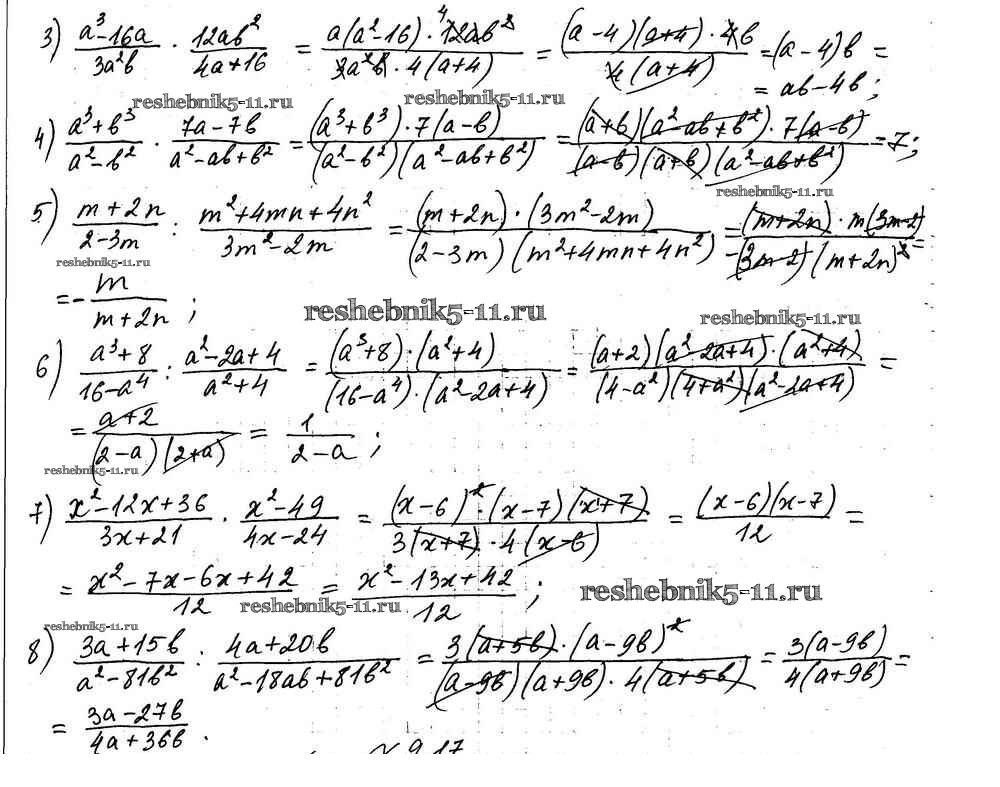 3) (a³-16a)/(3a²b) · (12ab²)/(4a+16) = (a(a²-16)·12ab²)/(3a²b·4(a+4)) 4 = ((a-4)(a+4)·4b)/(4(a+4)) = (a-4)b =
= ab-4b;
reshebnik5-11.ru reshebnik5-11.ru
4) (a³+b³)/(a²-b²) · (7a-7b)/(a²-ab+b²) = ((a³+b³)·7(a-b))/((a²-b²)(a²-ab+b²)) = ((a+b)(a²-ab+b²)·7(a-b))/((a-b)(a+b)(a²-ab+b²)) = 7;
reshebnik5-11.ru
5) (m+2n)/(2-3m) : (m²+4mn+4n²)/(3m²-2m) = ((m+2n)·(3m²-2m))/((2-3m)(m²+4mn+4n²)) = ((m+2n)·m(3m-2))/(-(3m-2)(m+2n)²) =
reshebnik5-11.ru
= -m/(m+2n);
reshebnik5-11.ru reshebnik5-11.ru
6) (a³+8)/(16-a⁴) : (a²-2a+4)/(a²+4) = ((a³+8)·(a²+4))/((16-a⁴)·(a²-2a+4)) = ((a+2)(a²-2a+4)·(a²+4))/((4-a²)(4+a²)(a²-2a+4)) =
= (a+2)/((2-a)(2+a)) = 1/(2-a);
reshebnik5-11.ru
7) (x²-12x+36)/(3x+21) · (x²-49)/(4x-24) = ((x-6)²·(x-7)(x+7))/(3(x+7)·4(x-6)) = ((x-6)(x-7))/12 =
= (x²-7x-6x+42)/12 = (x²-13x+42)/12;
reshebnik5-11.ru reshebnik5-11.ru
reshebnik5-11.ru
8) (3a+15b)/(a²-81b²) : (4a+20b)/(a²-18ab+81b²) = (3(a+5b)·(a-9b)²)/((a-9b)(a+9b)·4(a+5b)) = (3(a-9b))/(4(a+9b)) =
= (3a-27b)/(4a+36b).